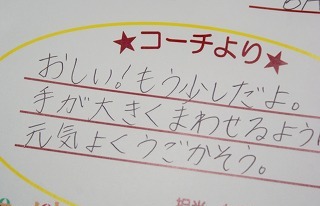 ★コーチより★
おしい!もう少しだよ。
手が大きくまわせるように
元気よくうごかそう。